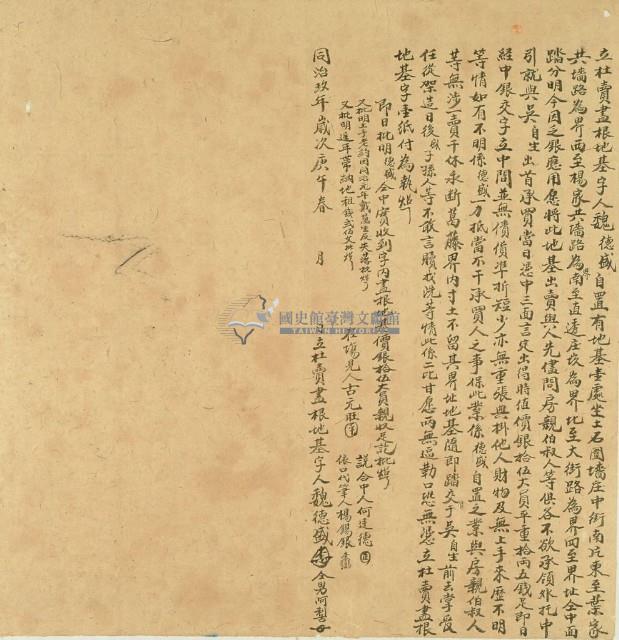 立杜賣盡根地基字人魏德盛自置有地基壹處坐土名圓墻庄中街南片東至葉家
共墻路為界西至楊家共墻路為界南至直透庄崁為界北至大街路為界四至界址仝中面
踏分明今因乏銀應用愿將此地基出賣與人先儘問房親伯叔人等俱各不欲承領外托中
引就與吳自生出首承買當日憑中三面言定出得時值價銀拾伍大員平重拾兩五錢足即日
經中銀交字立中間並無債償準折短少亦無重張典掛他人財物及無上手來歷不明
等情如有不明係德盛一力抵當不干承買人之事保此業係德盛自置之業與房親伯叔人
等無涉一賣千休永斷葛藤界內寸土不留其界址地基隨即踏交于吳自生前去掌管
任從架造日後子孫人等不敢言贖找洗等情此係二比甘愿兩無逼勒口恐無憑立杜賣盡根
地基字壹紙付為執炤
即日批明德盛仝中實收到字內盡根地基價銀拾伍大員親收足訖批炤
又批明上手老約因同治元年戴萬生反失落批炤
又批明遞年帶納地租錢貳佰文批炤
在塲見人古元旺
說合中人何廷德
依口代筆人楊錫銀
同治玖年歲次庚午春 月 日立杜賣盡根地基字人魏德盛 仝男阿梨
國史館臺灣文獻館
TAIWAN HISTORICA